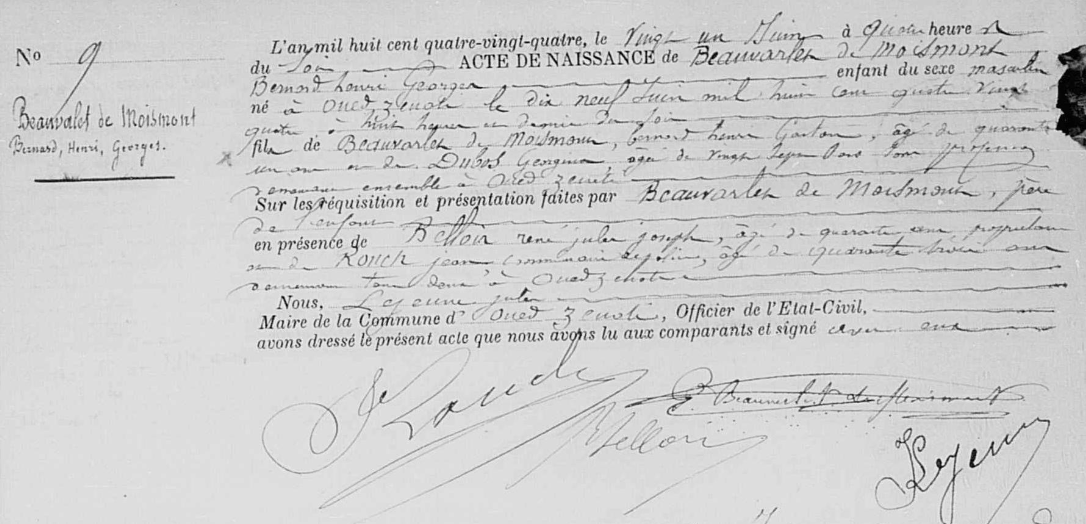 No 9
Beauvalet de Moismont
Bernard, Henri, Georges.
L'an mil huit cent quatre-vingt-quatre, le vingt un Juin à quatre heure s
du Soir ACTE DE NAISSANCE de Beauvarlet de Moismont
Bernard henri Georges enfant du sexe masculin
né à Oued Zenati le dix neuf Juin mil huit cent quatre vingt
quatre à huit heures et demie du soir
fils de Beauvarlet de Moismont, bernard henri Gaston, âgé de quarante
un ans et de Dubos Georgina, âgée de vingt sept ans sans profession
demeurant ensemble à Oued Zenati
Sur les réquisition et présentation faites par Beauvarlet de Moismont, père
de l'enfant
en présence de Belloir rené jules joseph, âgé de quarante ans, propriétaire
et de Ronck jean commissaire de police, âgé de quarante trois ans
demeurant tous deux à Oued Zenati
Nous, Lejeune jules
Maire de la Commune d' Oued Zenati, Officier de l'Etat-Civil,
avons dressé le présent acte que nous avons lu aux comparants et signé avec eux
Beauvarlet de Moismont
Belloir
Lejeune